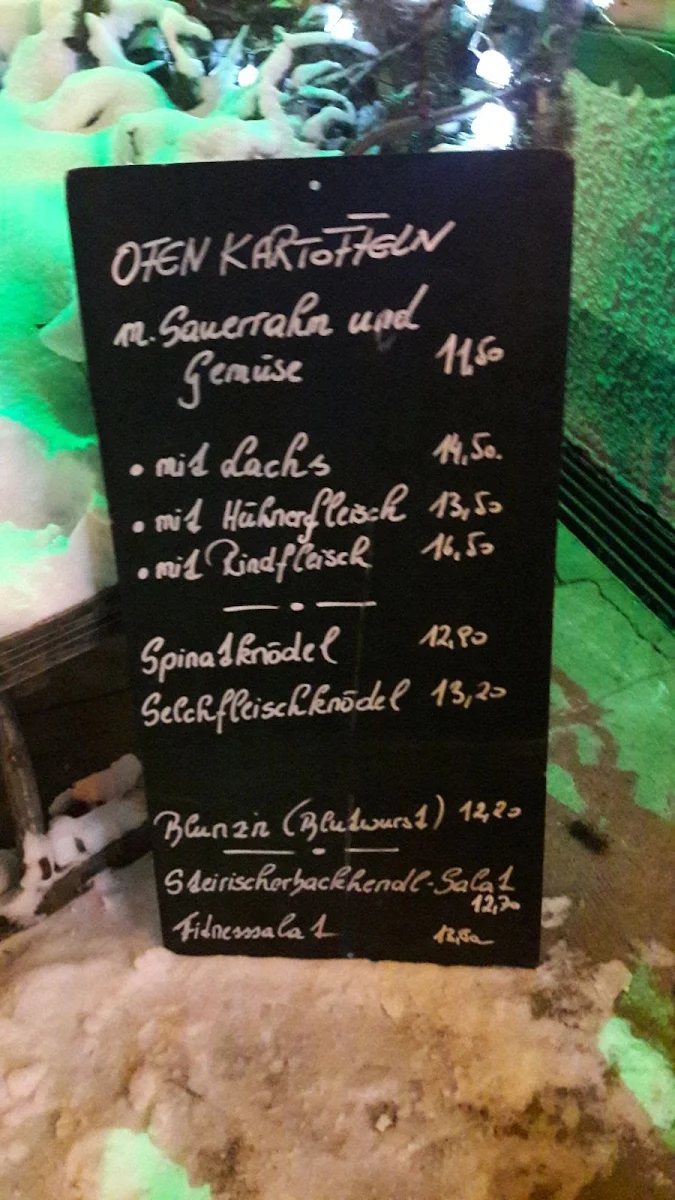 OFEN KARTOFFELN
m. Sauerrahm und
Gemüse 11,50
• mit Lachs 14,50.
• mit Hühnerfleisch 13,50
• mit Rindfleisch 16,50
Spinatknödel 12,90
Selchfleischknödel 13,20
Blunz'n (Blutwurst) 12,20
Steirischerbackhendl-Salat
12,70
Fitnesssalat